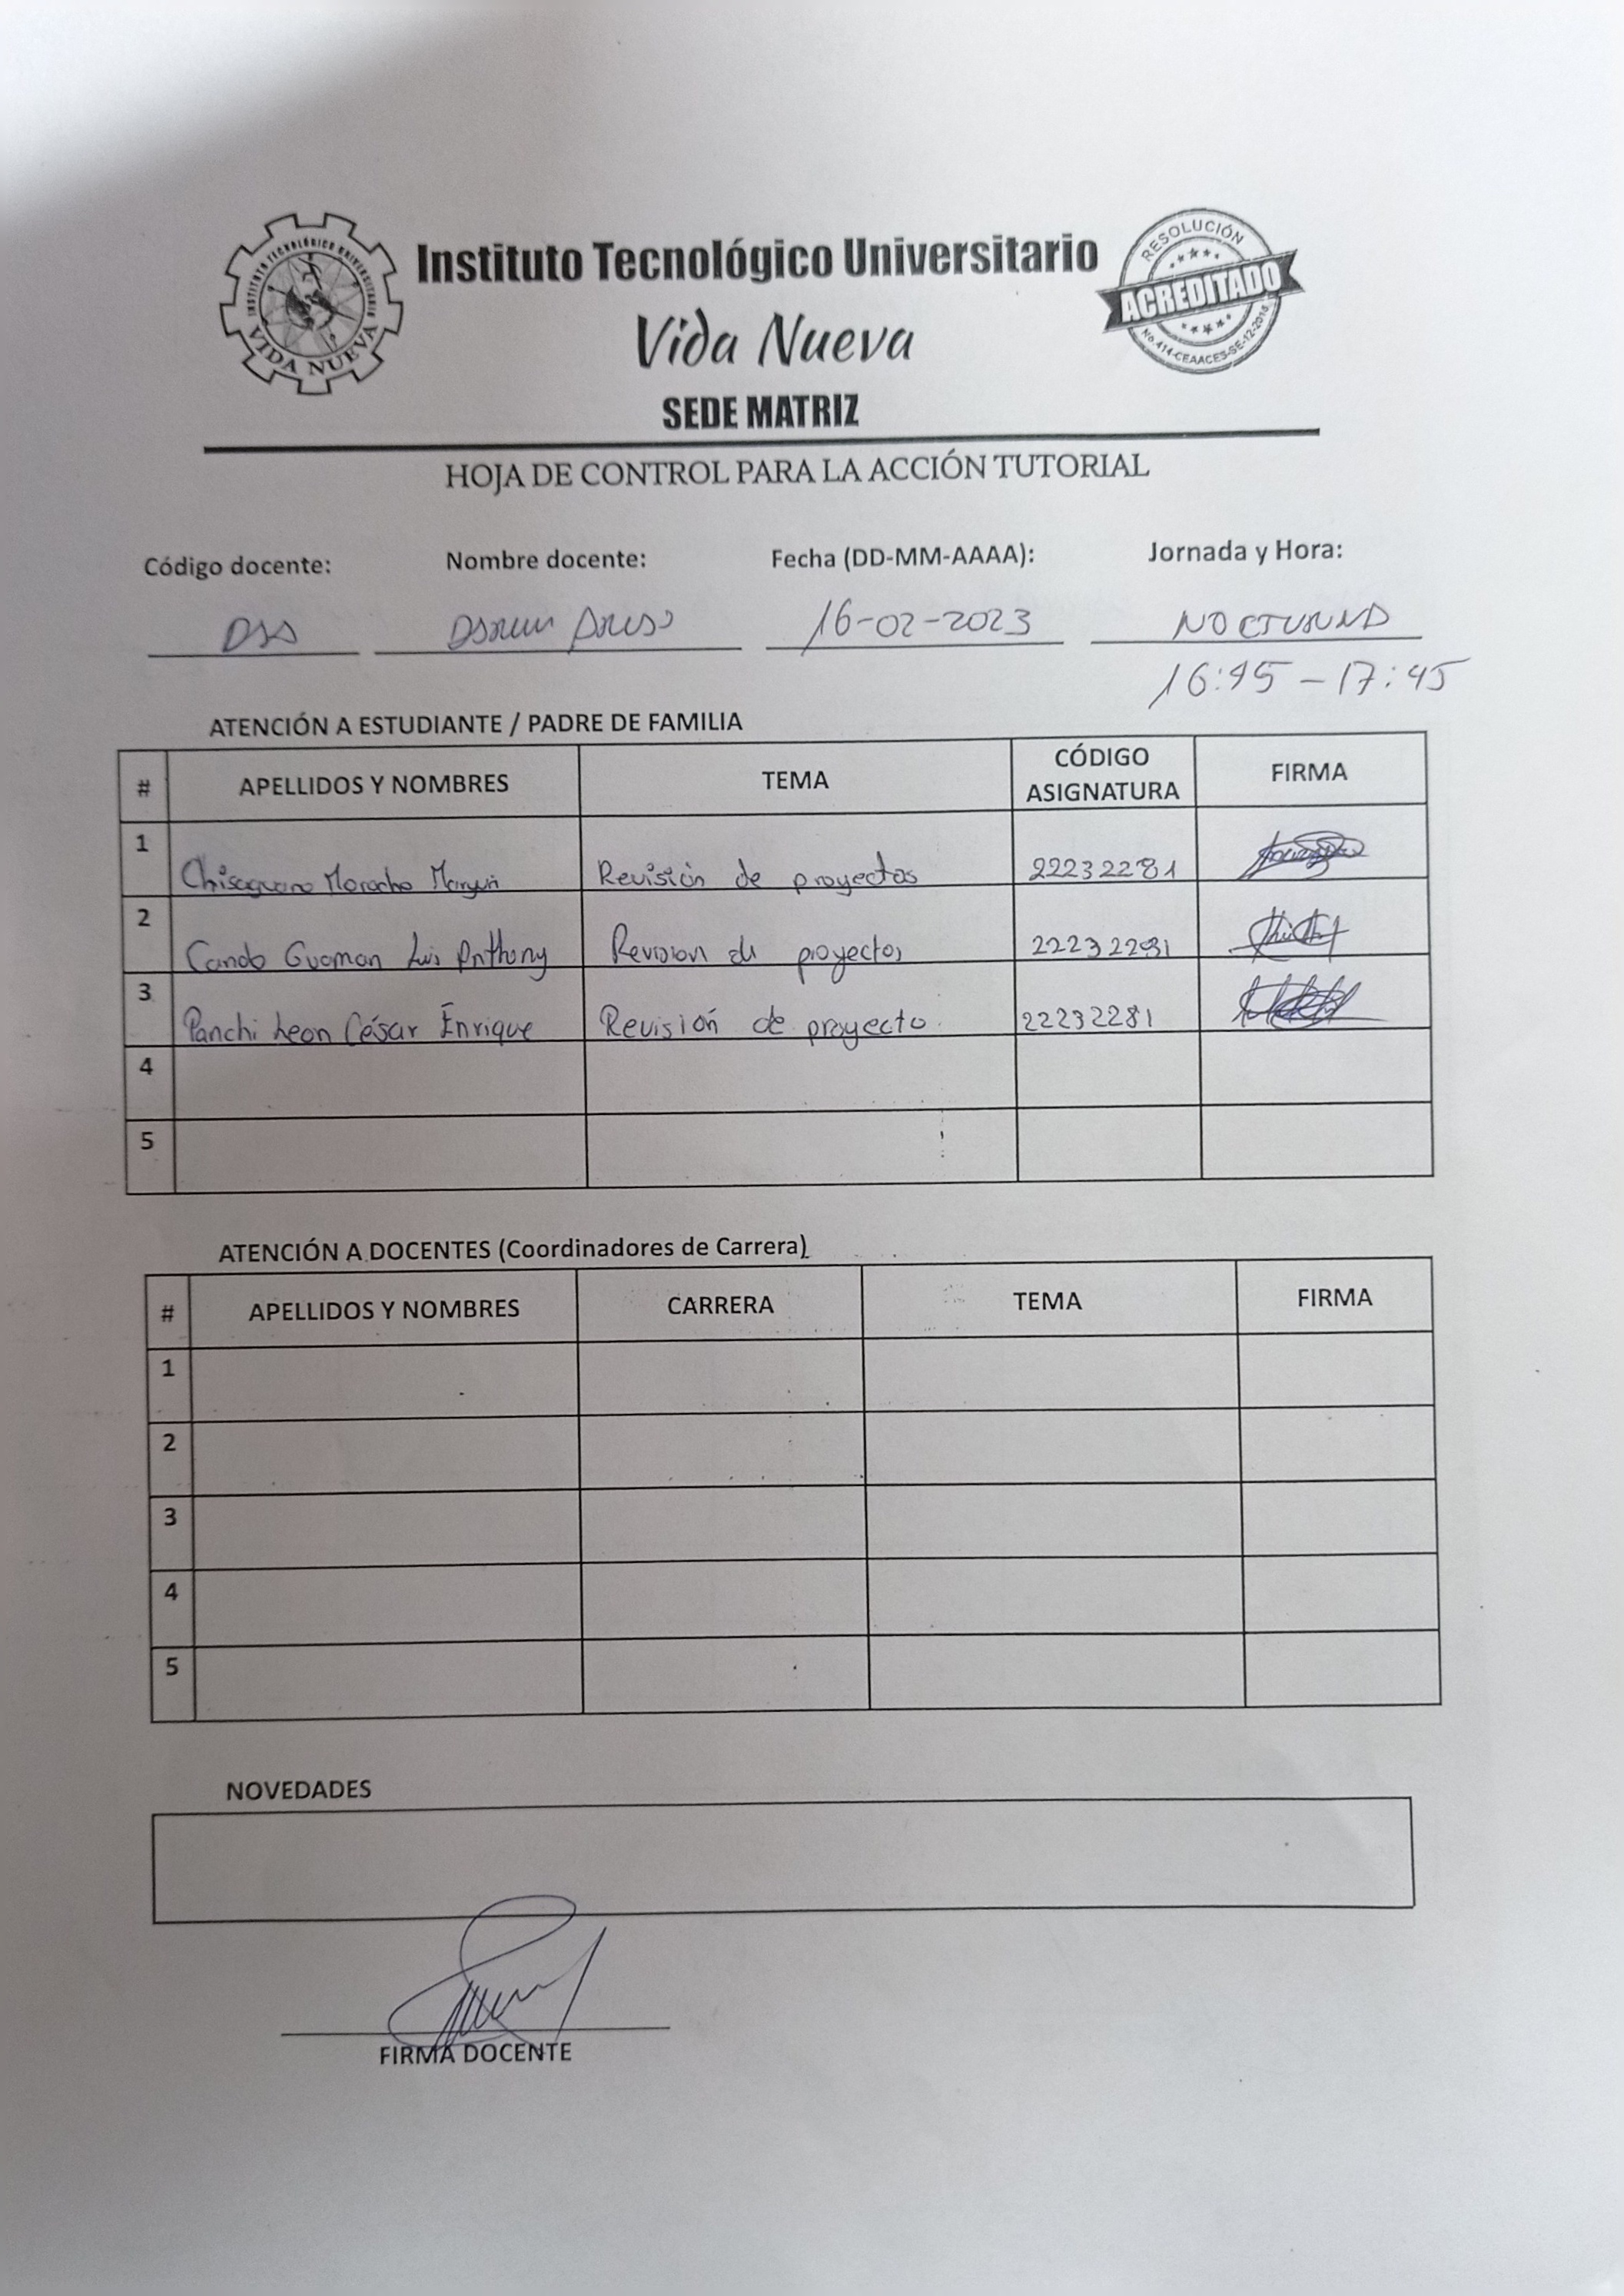 INSTITUTO TECNOLÓGICO UNIVERSITARIO
VIDA NUEVA
Instituto Tecnológico Universitario
Vida Nueva
SEDE MATRIZ
RESOLUCIÓN
ACREDITADO
No.414-CEAACES-SE-12-2018
HOJA DE CONTROL PARA LA ACCIÓN TUTORIAL
Código docente: Nombre docente: Fecha (DD-MM-AAAA): Jornada y Hora:
16-02-2023 NOCTURNA
16:45 - 17:45
ATENCIÓN A ESTUDIANTE / PADRE DE FAMILIA
# APELLIDOS Y NOMBRES TEMA CÓDIGO ASIGNATURA FIRMA
1 Chisaguano Morocho Revisión de proyectos 22232281
2 Cando Guaman Luis Anthony Revision de proyectos 22232281
3 Panchi Leon César Enrique Revisión de proyecto. 22232281
4
5
ATENCIÓN A DOCENTES (Coordinadores de Carrera)
# APELLIDOS Y NOMBRES CARRERA TEMA FIRMA
1
2
3
4
5
NOVEDADES
FIRMA DOCENTE